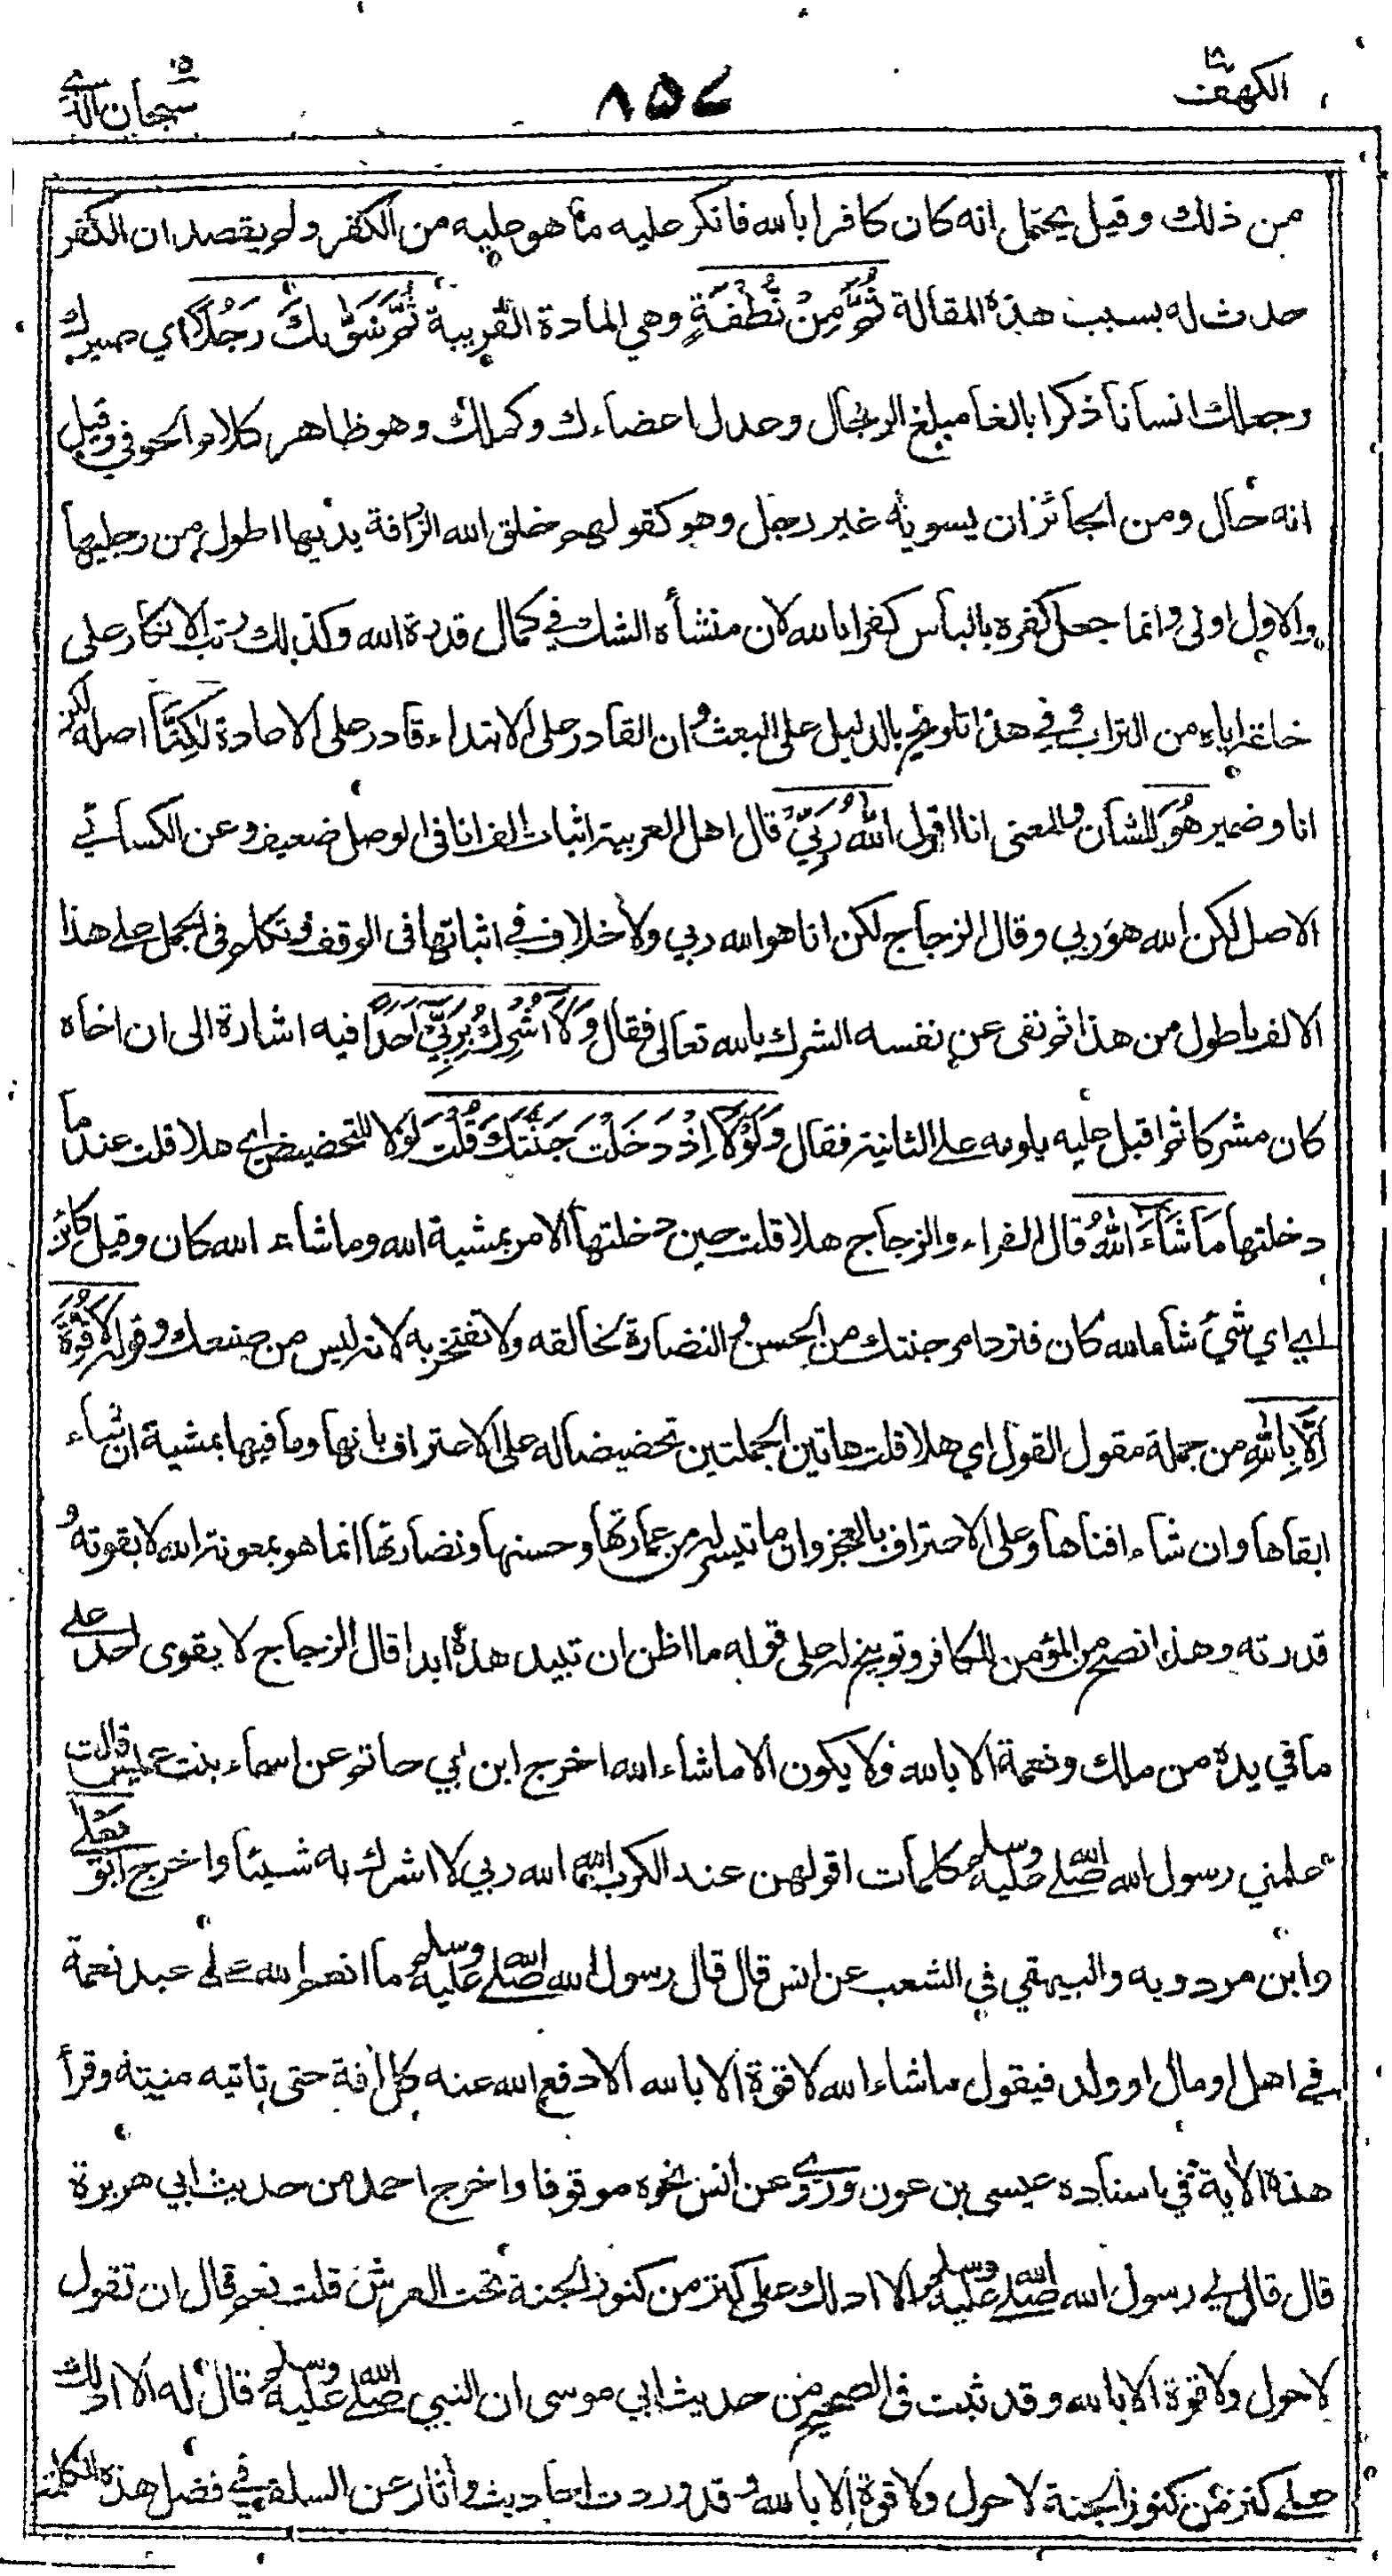 الكهف ١٨
٨٥٧
سبحان الذي ١٥
من ذلك وقيل يحتمل انه كان كافرا بالله فانكر عليه ما هو عليه من الكفر ولم يقصد ان الكفر
حدث له بسبب هذه المقالة ثُمَّ مِنْ نُّطْفَةٍ وهي المادة القريبة ثُمَّ سَوّٰىكَ رَجُلًا اي صيرك
وجعلك انسانا ذكرا بالغا مبلغ الرجال وعدل اعضاءك وكملك وهو ظاهر كلام الحوفي وقيل
انه حال ومن الجائز ان يسويه غير رجل وهو كقولهم خلق الله الزرافة يديها اطول من رجليها
والاول اولى وانما جعل كفره بالبأس كفرا بالله لان منشأه الشك في كمال قدرة الله وكذلك رتب الانكار على
خلقه اياه من التراب وفي هذا تلويح بالدليل على البعث وان القادر على الابتداء قادر على الاعادة لٰكِنَّا اصله لكن
انا وضمير هُوَ للشأن والمعنى انا اقول اللّٰهُ رَبِّيْ قال اهل العربية اثبات الف انا في الوصل ضعيف وعن الكسائي
الاصل لكن الله هو ربي وقال الزجاج لكن انا هو الله ربي ولا خلاف في اثباتها في الوقف وتكلم في الجمل على هذا
الالف باطول من هذا ثم نفى عن نفسه الشرك بالله تعالى فقال وَلَا اُشْرِكُ بِرَبِّيْ اَحَدًا فيه اشارة الى ان اخاه
كان مشركا ثم اقبل عليه يلومه على الثانية فقال وَلَوْلَا اِذْ دَخَلْتَ جَنَّتَكَ قُلْتَ لولا للتحضيض اي هلا قلت عند ما
دخلتها مَا شَآءَ اللّٰهُ قال الفراء والزجاج هلا قلت حين دخلتها الامر بمشية الله وما شاء الله كان وقيل كائن
اي اي شيء شاءالله كان فترد امر جنتك من الحسن والنضارة لخالقه ولا تفتخر به لانه ليس من صنعك وقوله لَا قُوَّةَ
اِلَّا بِاللّٰهِ من جملة مقول القول اي هلا قلت هاتين الجملتين تحضيضا له على الاعتراف بانها وما فيها بمشية ان شاء
ابقاها وان شاء افناها وعلى الاعتراف بالعجز وان ما تيسر له من عمارتها وحسنها ونضارتها انما هو بمعونة الله لا بقوته و
قدرته وهذا نصح من المؤمن للكافر وتوبيخ له على قوله ما اظن ان تبيد هذه ابدا قال الزجاج لا يقوى احد على
ما في يده من ملك ونعمة الا بالله ولا يكون الا ما شاء الله اخرج ابن ابي حاتم عن اسماء بنت عميس قالت
علمني رسول الله صلى الله عليه وسلم كلمات اقولهن عند الكرب الله الله ربي لا اشرك به شيئا واخرج ابو يعلى
وابن مردويه والبيهقي في الشعب عن انس قال قال رسول الله صلى الله عليه وسلم ما انعم الله على عبد نعمة
في اهل او مال او ولد فيقول ما شاء الله لا قوة الا بالله الا دفع الله عنه كل افة حتى تاتيه منيته وقرأ
هذه الاية في اسناده عيسى بن عون وروي عن انس نحوه موقوفا واخرج احمد من حديث ابي هريرة
قال قال لي رسول الله صلى الله عليه وسلم الا ادلك على كنز من كنوز الجنة تحت العرش قلت نعم قال ان تقول
لا حول ولا قوة الا بالله وقد ثبت في الصحيح من حديث ابي موسى ان النبي صلى الله عليه وسلم قال له الا ادلك
على كنز من كنوز الجنة لا حول ولا قوة الا بالله وقد وردت احاديث وأثار عن السلف في فضل هذه الكلمة